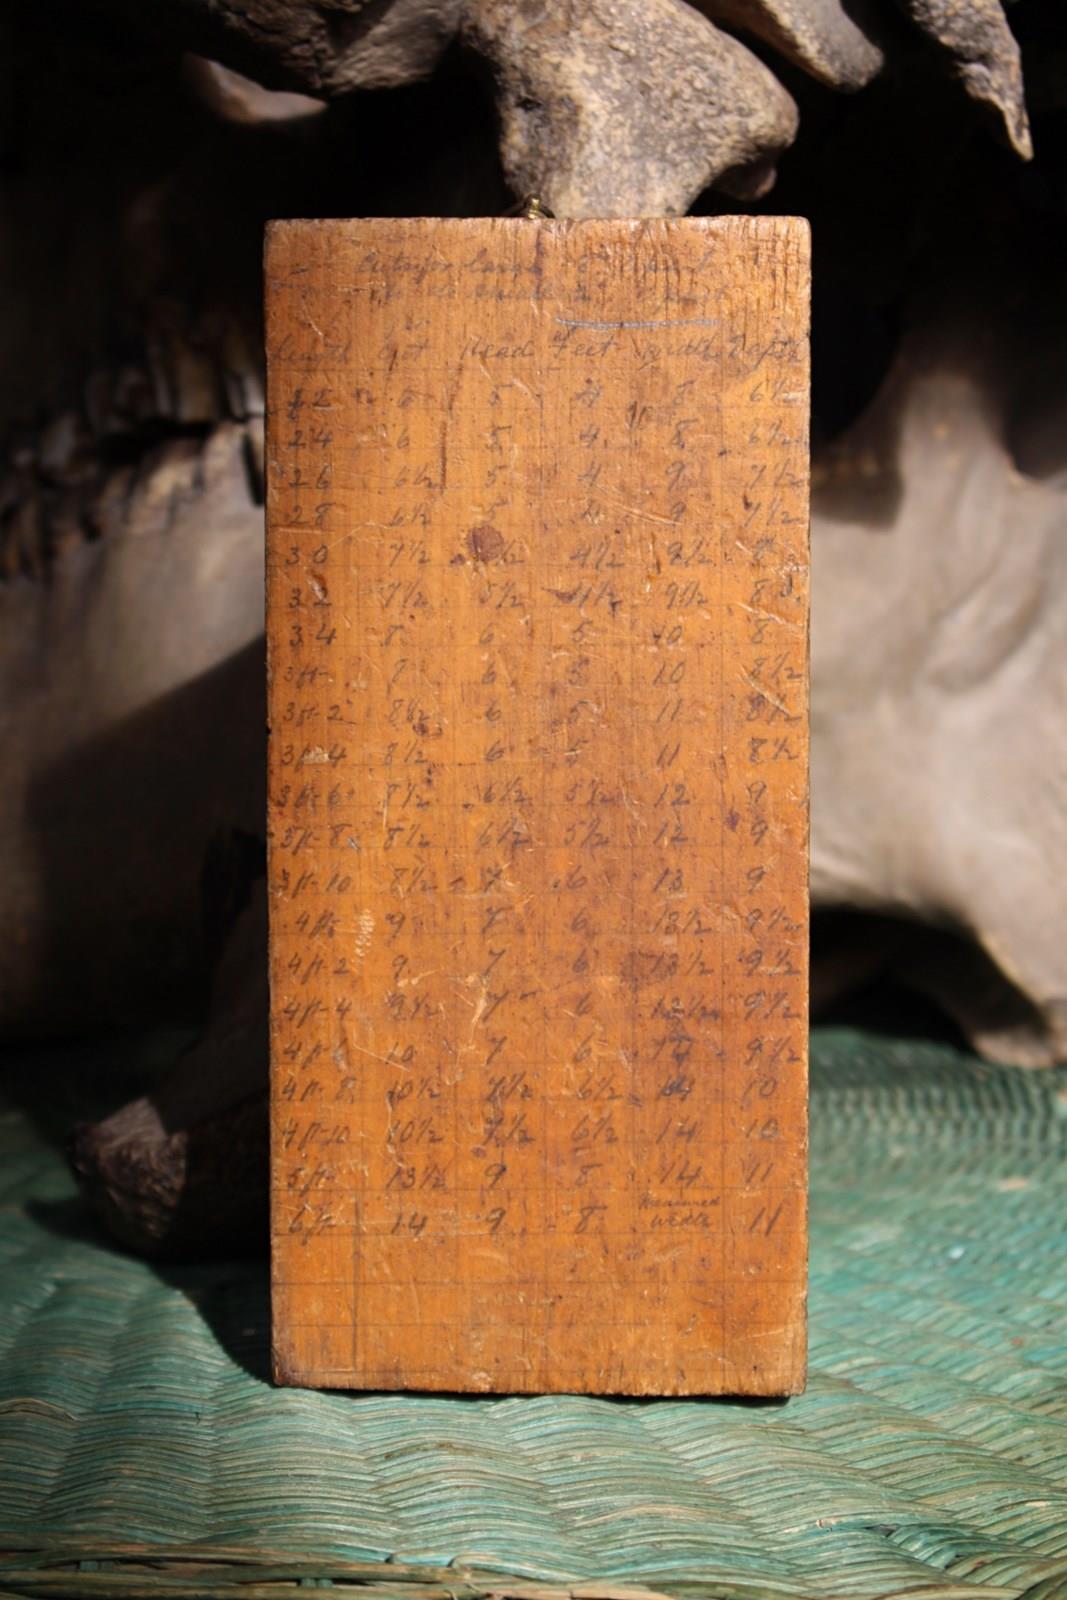 Length Head Feet width Depth
22 6 5 4 8 6½
24 6 5 4 8 6½
26 6½ 5 4 9 7½
28 6½ 5 4 9 7½
30 7½ 4½ 9½
32 7½ 5½ 4½ 9½ 8
34 8 6 5 10 8
3ft- 8 6 5 10 8½
3ft-2 8½ 6 5 11 8½
3ft-4 8½ 6 5 11 8½
3ft-6 8½ 6½ 5½ 12 9
3ft-8 8½ 6½ 5½ 12 9
3ft-10 8½ 7 6 13 9
4ft- 9 7 6 13½ 9½
4ft-2 9 7 6 13½ 9½
4ft-4 9½ 7 6 13½ 9½
4ft-6 10 7 6 14 9½
4ft-8 10½ 7½ 6½ 14 10
4ft-10 10½ 7½ 6½ 14 10
5ft- 13½ 9 8 14 11
6ft 14 9 8 width 11